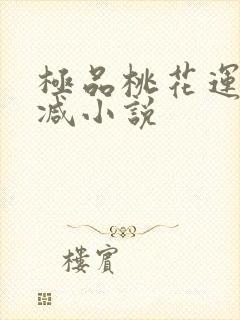 極品桃花運
减小說
樓賓